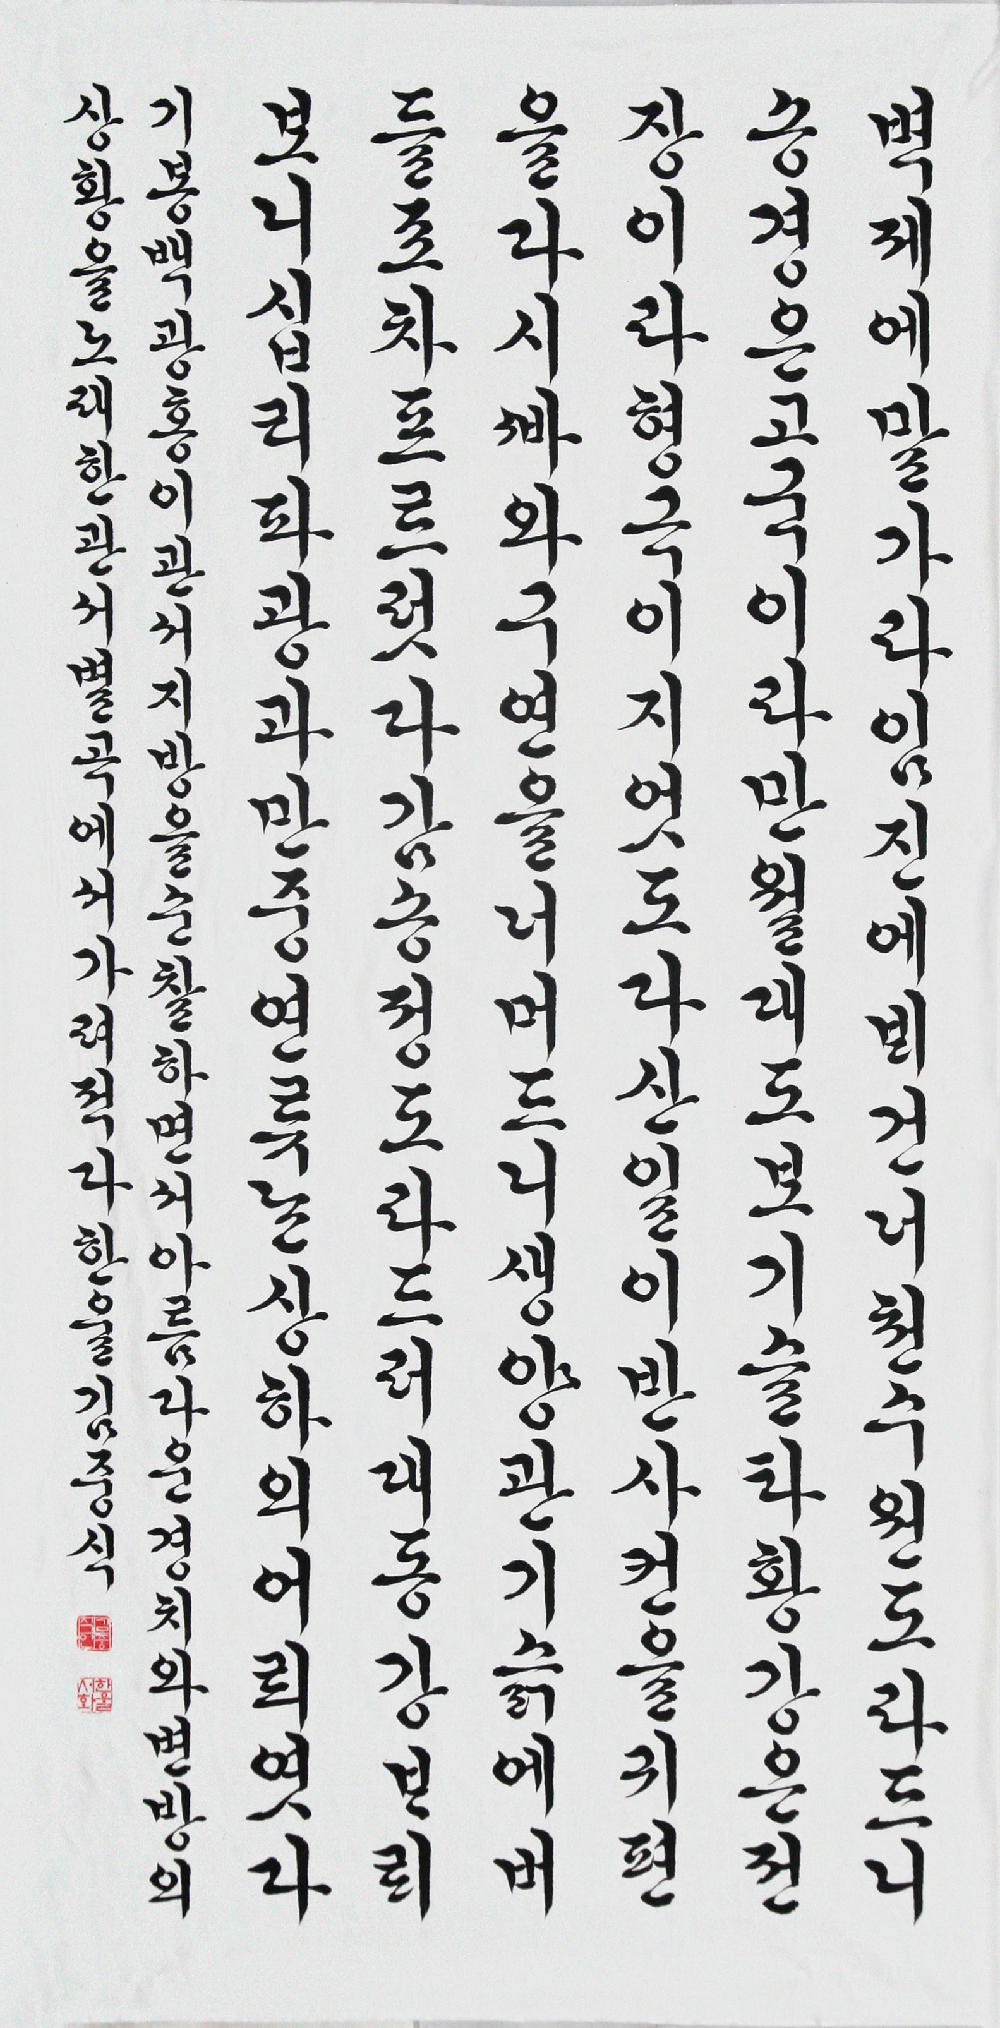 벽제에말가라임진에비건너천수원도라드니
송경은고국이라만월대도보기슬타황강은전
장이라형극이지엿도다산일이반사컨을귀편
을라시빠와구연을너머드니생양관기슭에버
들조차프르럿다감송정도라드러대동강보릐
보니십리파광과만중연류난상하의어릐엿다
기봉백광홍이관서지방을순찰하면서아름다운경치와변방의
상황을노래한관서별곡에서가려적다한울김중식